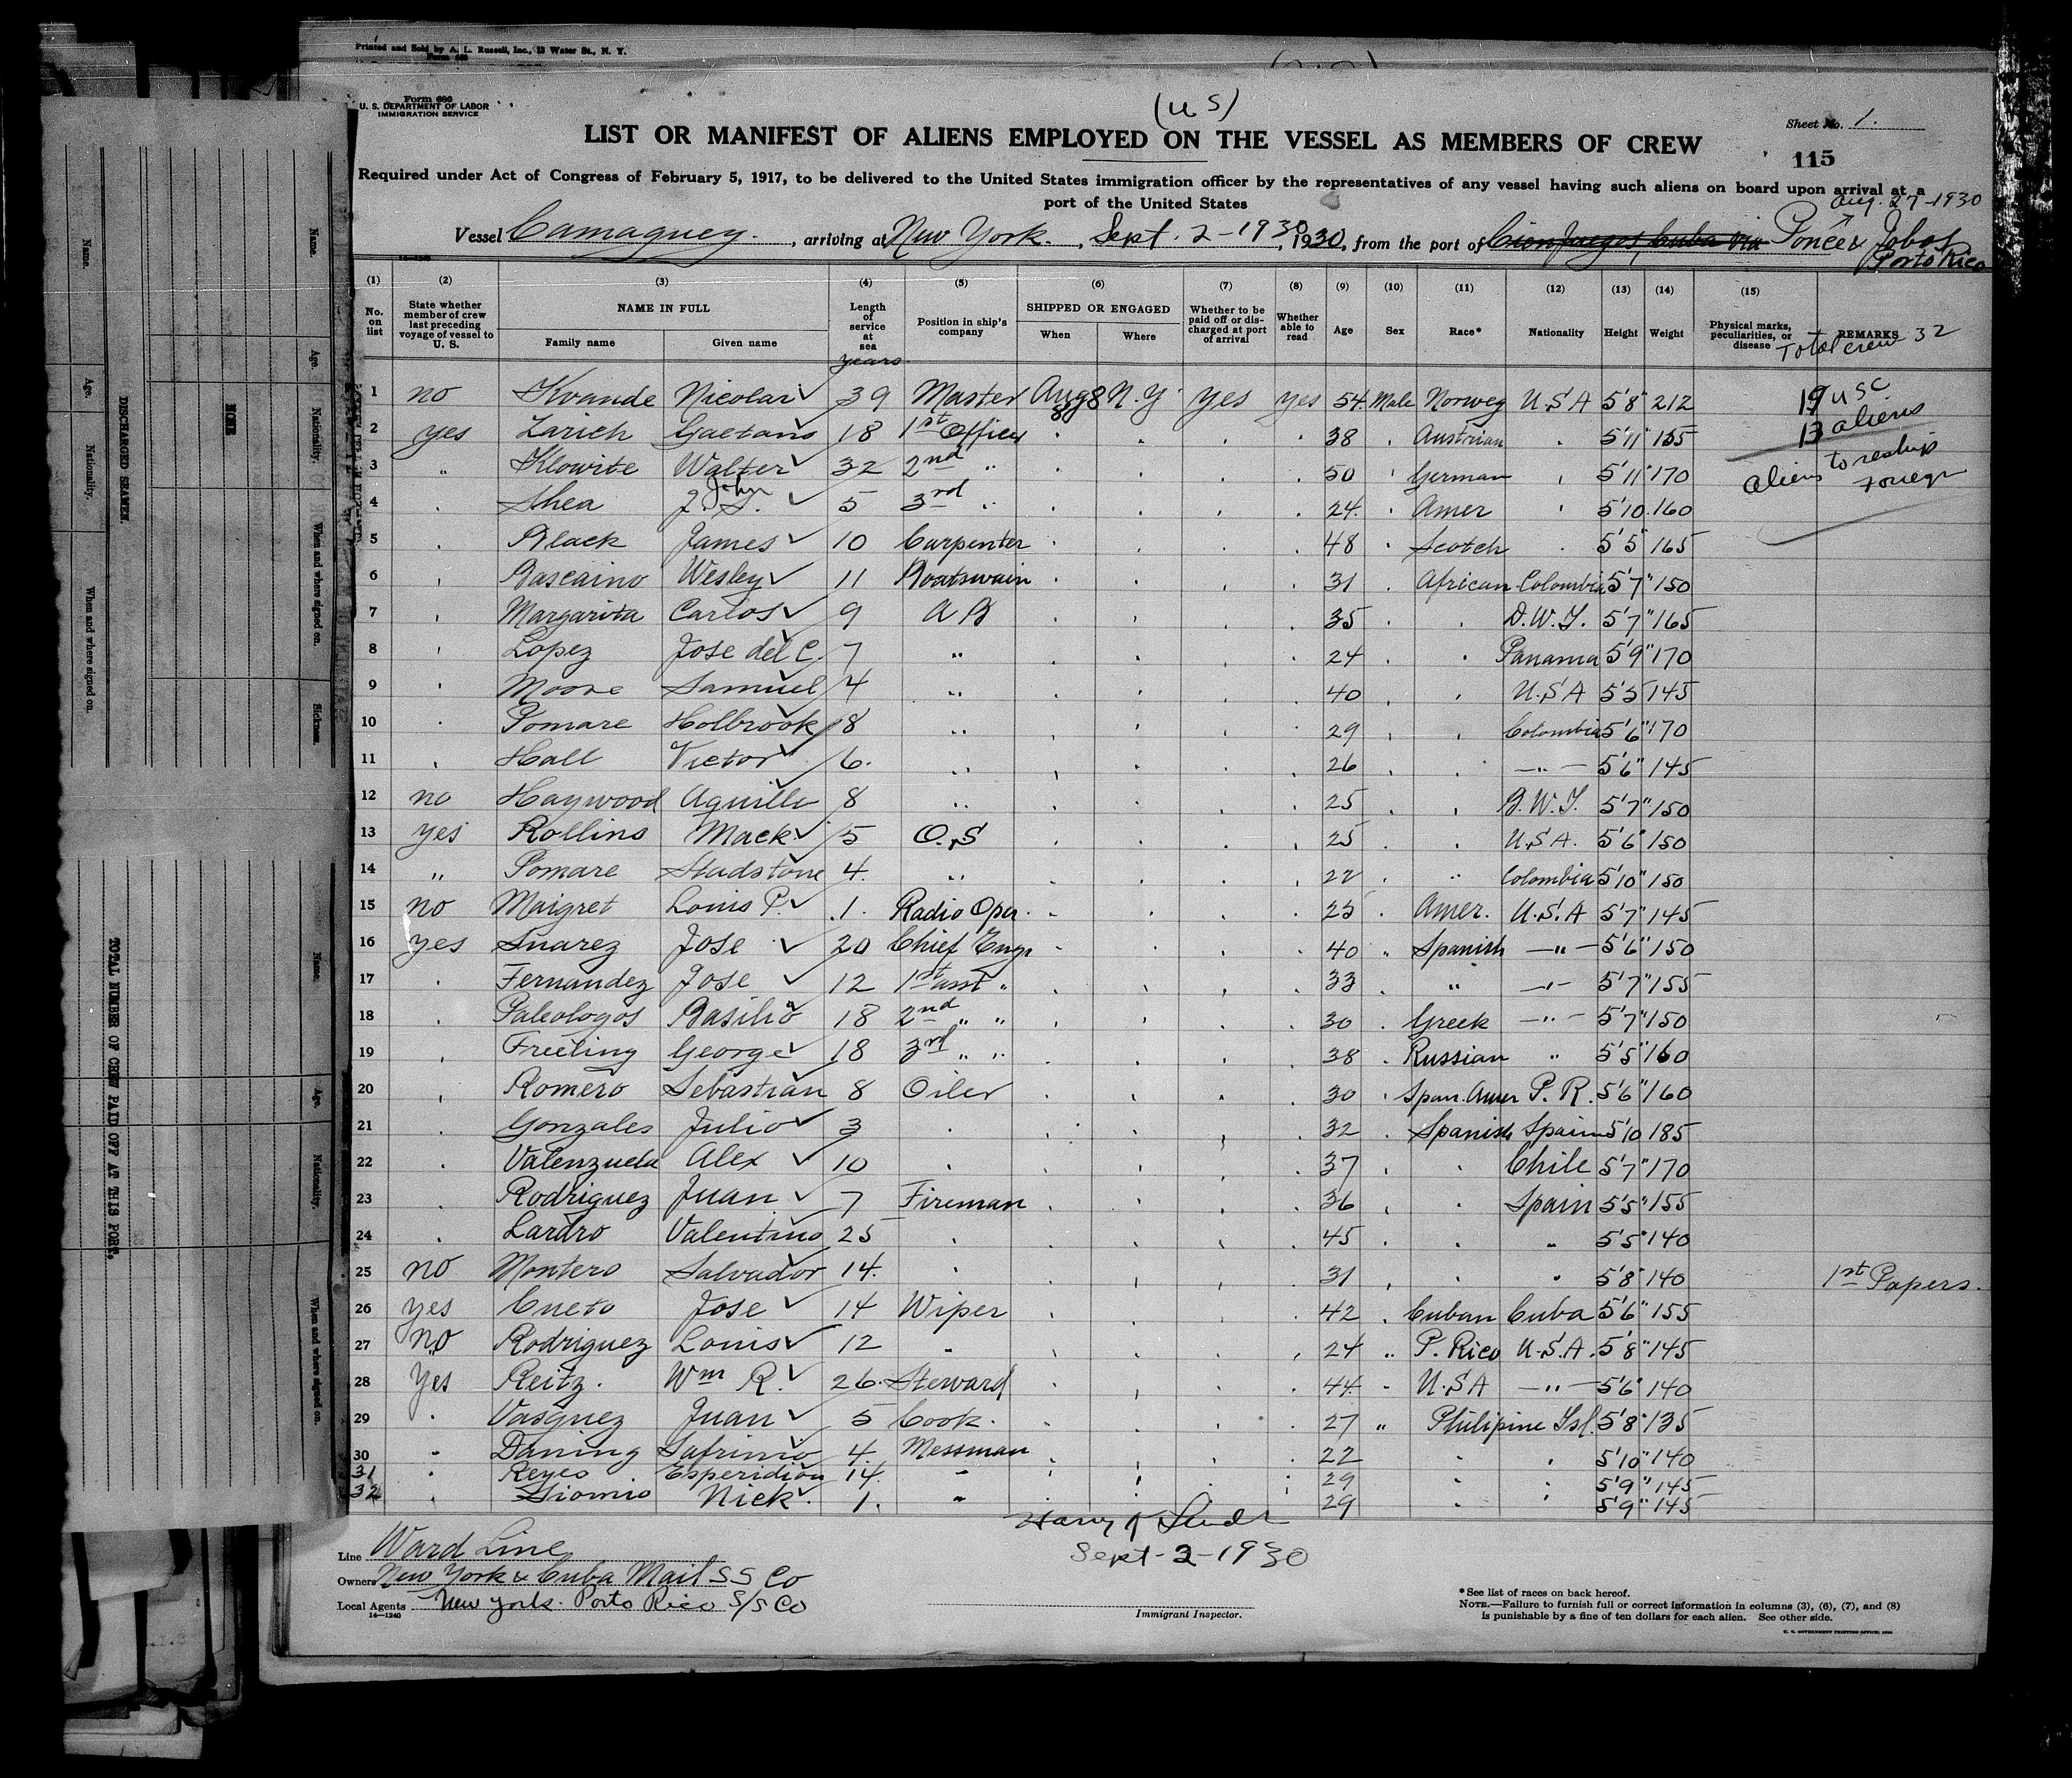 Printed and Sold by A. L. Russell, Inc., 13 Water St., N. Y.
Form 680
U. S. DEPARTMENT OF LABOR
IMMIGRATION SERVICE
(U S)
Sheet No. 1.
LIST OR MANIFEST OF ALIENS EMPLOYED ON THE VESSEL AS MEMBERS OF CREW
115
Required under Act of Congress of February 5, 1917, to be delivered to the United States immigration officer by the representatives of any vessel having such aliens on board upon arrival at a
port of the United States
Aug. 27-1930
Vessel Camaguey. , arriving at New York. , Sept. 2-1930, 1930, from the port of Cienfuegos, Cuba via Ponce & Jobos
Porto Rico
(1) (2) (3) (4) (5) (6) (7) (8) (9) (10) (11) (12) (13) (14) (15)
No. on list State whether member of crew last preceding voyage of vessel to U. S. NAME IN FULL Family name Given name Length of service at sea Position in ship's company SHIPPED OR ENGAGED When Where Whether to be paid off or discharged at port of arrival Whether able to read Age Sex Race* Nationality Height Weight Physical marks, peculiarities, or disease REMARKS
years
Total crew 32
19 USC
13 aliens
aliens to reship foreign
1 no Kvande Nicolai 39 Master Aug 8 N.Y. yes yes 54 Male Norweg U.S.A 5'8" 212
2 yes Zarich Gaetano 18 1st Officer 38 Austrian 5'11" 155
3 " Klowite Walter 32 2nd " 50 German 5'11" 170
4 Shea J. S. John 5 3rd " 24 Amer 5'10 160
5 Black James 10 Carpenter 48 Scotch 5'5" 165
6 Bascaino Wesley 11 Boatswain 31 African Colombia 5'7" 150
7 Margarita Carlos 9 A B 35 D.W.I. 5'7" 165
8 Lopez Jose del C. 7 " 24 Panama 5'9" 170
9 Moore Samuel 4 " 40 U.S.A 5'5 145
10 Pomare Holbrook 8 " 29 Colombia 5'6" 170
11 Hall Victor 6. " 26 " 5'6" 145
12 no Haywood Aquilla 8 " 25 B.W.I. 5'7" 150
13 yes Rollins Mack 5 O.S 25 U.S.A. 5'6" 150
14 " Pomare Stadstone 4. " 22 " Colombia 5'10" 150
15 no Maigret Louis P. 1. Radio Oper. 25 Amer. U.S.A 5'7" 145
16 yes Suarez Jose 20 Chief Engr 40 " Spanish " 5'6" 150
17 Fernandez Jose 12 1st asst " 33 " " 5'7" 155
18 Paleologos Basilio 18 2nd " " 30 Greek " 5'7" 150
19 Freeling George 18 3rd " " 38 Russian " 5'5" 160
20 Romero Sebastian 8 Oiler 30 Span. Amer P. R. 5'6" 160
21 Gonzales Julio 3 32 Spanish Spain 5'10 185
22 Valenzuela Alex 10 37 Chile 5'7" 170
23 Rodriguez Juan 7 Fireman 36 Spain 5'5" 155
24 Lardro Valentino 25 45 " 5'5" 140
25 no Montero Salvador 14. 31 5'8" 140 1st Papers.
26 yes Cueto Jose 14 Wiper 42 Cuban Cuba 5'6" 155
27 no Rodriguez Louis 12 " 24 " P. Rico U.S.A. 5'8" 145
28 Yes Reitz. Wm R. 26. Steward 44 U.S.A " 5'6" 140
29 Vasquez Juan 5 Cook. 27 " Philipine Isl. 5'8" 135
30 Daning 4. Messman 22 5'10" 140
31 Reyes Esperidion 14. " 29 5'9" 145
32 Nick. 1. " 29 5'9" 145
Sept-2-1930
Line Ward Line
Owners New York & Cuba Mail SS Co
Local Agents New York. Porto Rico S/S Co
14—1240
Immigrant Inspector.
*See list of races on back hereof.
NOTE.—Failure to furnish full or correct information in columns (3), (6), (7), and (8)
is punishable by a fine of ten dollars for each alien. See other side.
Name. Age. Nationality. When and where signed on.
DISCHARGED SEAMEN.
NONE
Name. Age. Nationality. When and where signed on. Sickness.
TOTAL NUMBER OF CREW PAID OFF AT THIS PORT.
Name. Age. Nationality. When and where signed on.